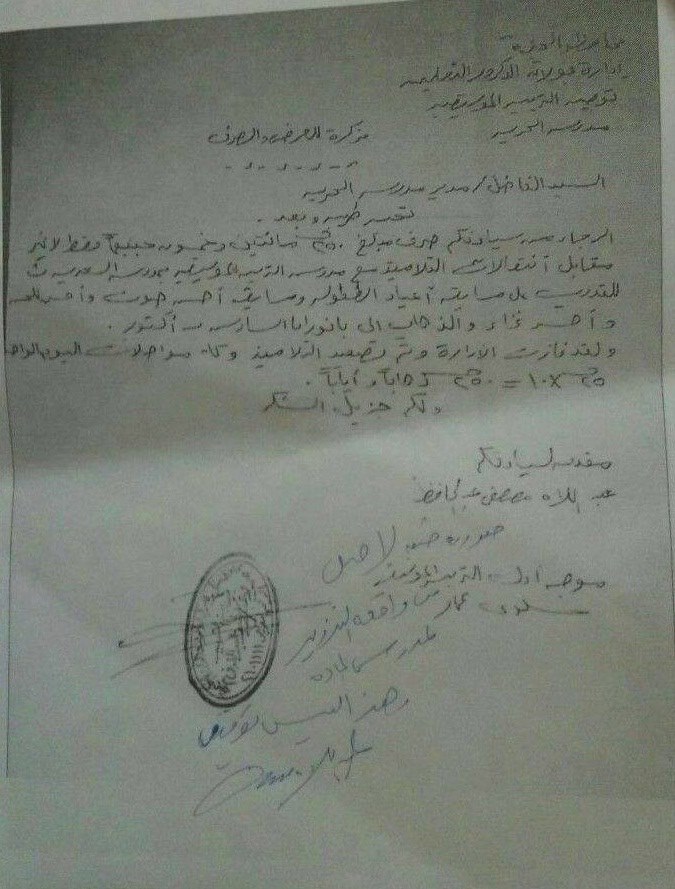 محافظة الجيزة
إدارة بولاق الدكرور التعليمية
توجيه التربية الموسيقية
مدرسة الحرية
مذكرة للعرض والصرف
السيد الفاضل / مدير مدرسة الحرية
تحية طيبة وبعد .
الرجاء من سيادتكم صرف مبلغ ٢٥٠ مائتين وخمسون جنيهاً فقط لاغير
مقابل انتقالات التلاميذ مع مدرسة التربية الموسيقية بمدرسة
للتدريب على مسابقة أعياد الطفولة ومسابقة أحسن صوت وأحسن
وأحسن والذهاب الى بانوراما السادس من أكتوبر .
ولقد فازت الإدارة وتم تصعيد التلاميذ وكانت مواصلات اليوم الواحد
٢٥ × ١٠ = ٢٥٠ ذهاباً وأياباً .
ولكم جزيل الشكر
مقدمه لسيادتكم
عبد اللاه مصطفى عبد الحافظ
صورة طبق لاصل
موجه أول التربية الموسيقية
سلوى عمار
من واقعة التزوير
لمدرس الماده
وهذا ليس توقيعى